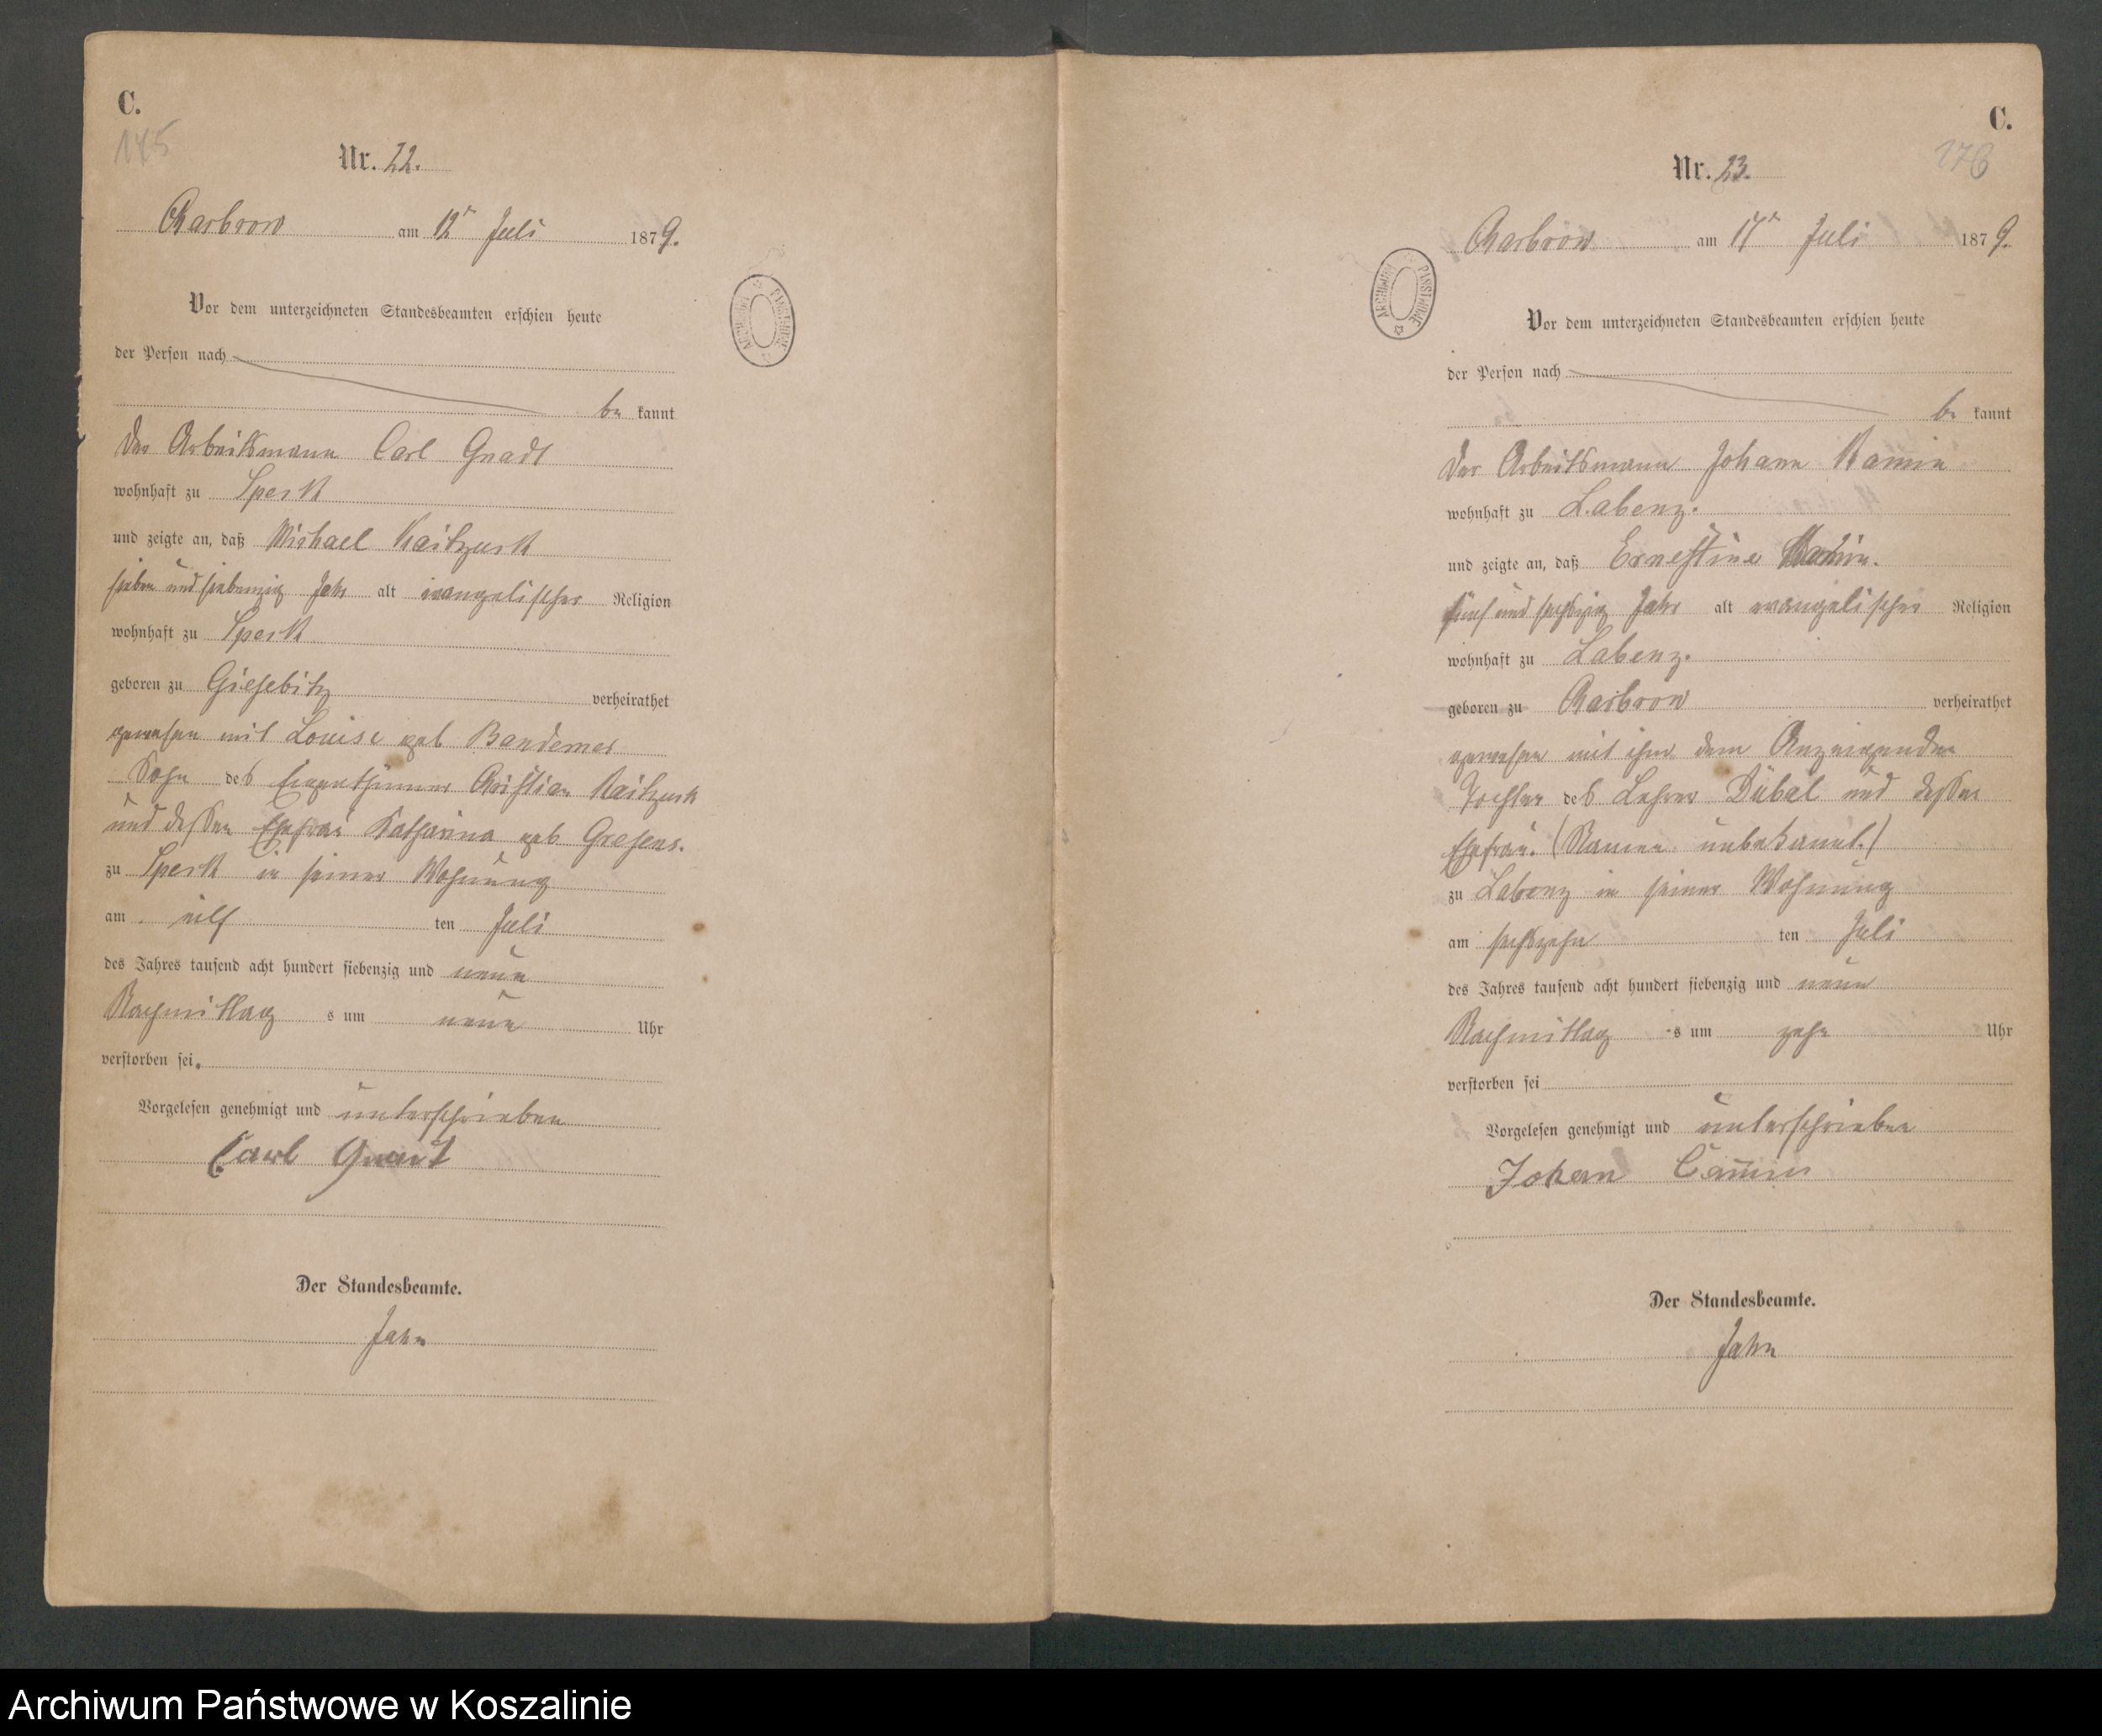 C.
175
Nr. 22.
Charbrow am 12t Juli 1879.
Vor dem unterzeichneten Standesbeamten erschien heute
der Person nach
be kannt
Der Arbeitsmann Carl Gnadt
wohnhaft zu Speck
und zeigte an, daß Michael Kaitzuck
sieben und siebenzig Jahr alt evangelischer Religion
wohnhaft zu Speck
geboren zu Giesebitz verheirathet
gewesen mit Louise geb Bandemer
Sohn des Eigenthümer Christian Kaitzuck
und dessen Ehefrau Katharina geb Gresens.
zu Speck in seiner Wohnung
am eilf ten Juli
des Jahres tausend acht hundert siebenzig und neun
Nachmittag s um neun Uhr
verstorben sei.
Vorgelesen genehmigt und unterschrieben
Carl Gnadt
Der Standesbeamte.
Jahn
C.
176
Nr. 23.
Charbrow am 17t Juli 1879.
ARCHIWUM PAŃSTWOWE
Vor dem unterzeichneten Standesbeamten erschien heute
der Person nach
be kannt
Der Arbeitsmann Johann Kamin
wohnhaft zu Labenz.
und zeigte an, daß Ernestine Kamin.
fünf und sechszig Jahr alt evangelischer Religion
wohnhaft zu Labenz.
geboren zu Charbrow verheirathet
gewesen mit ihm dem Anzeigenden
Tochter des Lehrer Dübal und dessen
Ehefrau. (Namen unbekannt.)
zu Labenz in seiner Wohnung
am sechszehn ten Juli
des Jahres tausend acht hundert siebenzig und neun
Nachmittag s um zehn Uhr
verstorben sei
Vorgelesen genehmigt und unterschrieben
Johan Camin
Der Standesbeamte.
Jahn
Archiwum Państwowe w Koszalinie